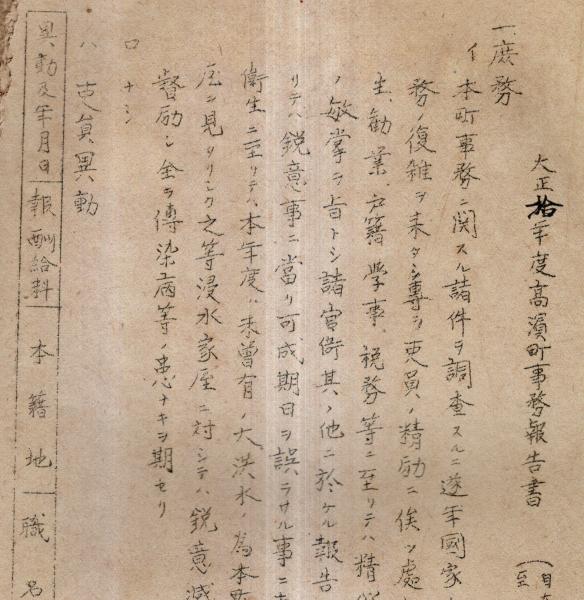 大正拾年度高濱町事務報告書
(自
至
一、庶務
イ 本町事務ニ関スル諸件ヲ調査スルニ逐年國家
務ノ復雑ヲ来タシ專ラ吏員ノ精励ニ俟ツ處
生、勧業、戸籍、學事、税務等ニ至リテハ精
ノ敏掌ヲ旨トシ諸官衙其ノ他ニ於ケル報告
リテハ鋭意事ニ當リ可成期日ヲ誤ラサル事ニ
衛生ニ至リテハ本年度ハ未曾有ノ大洪水ノ為本町
ニ見タリシク之等浸水家屋ニ対シテハ鋭意減
督励シ全ク傳染病等ノ患ナキヲ期セリ
ロ ナシ
ハ 吏員異動
異動及年月日 報酬給料 本籍地 職名